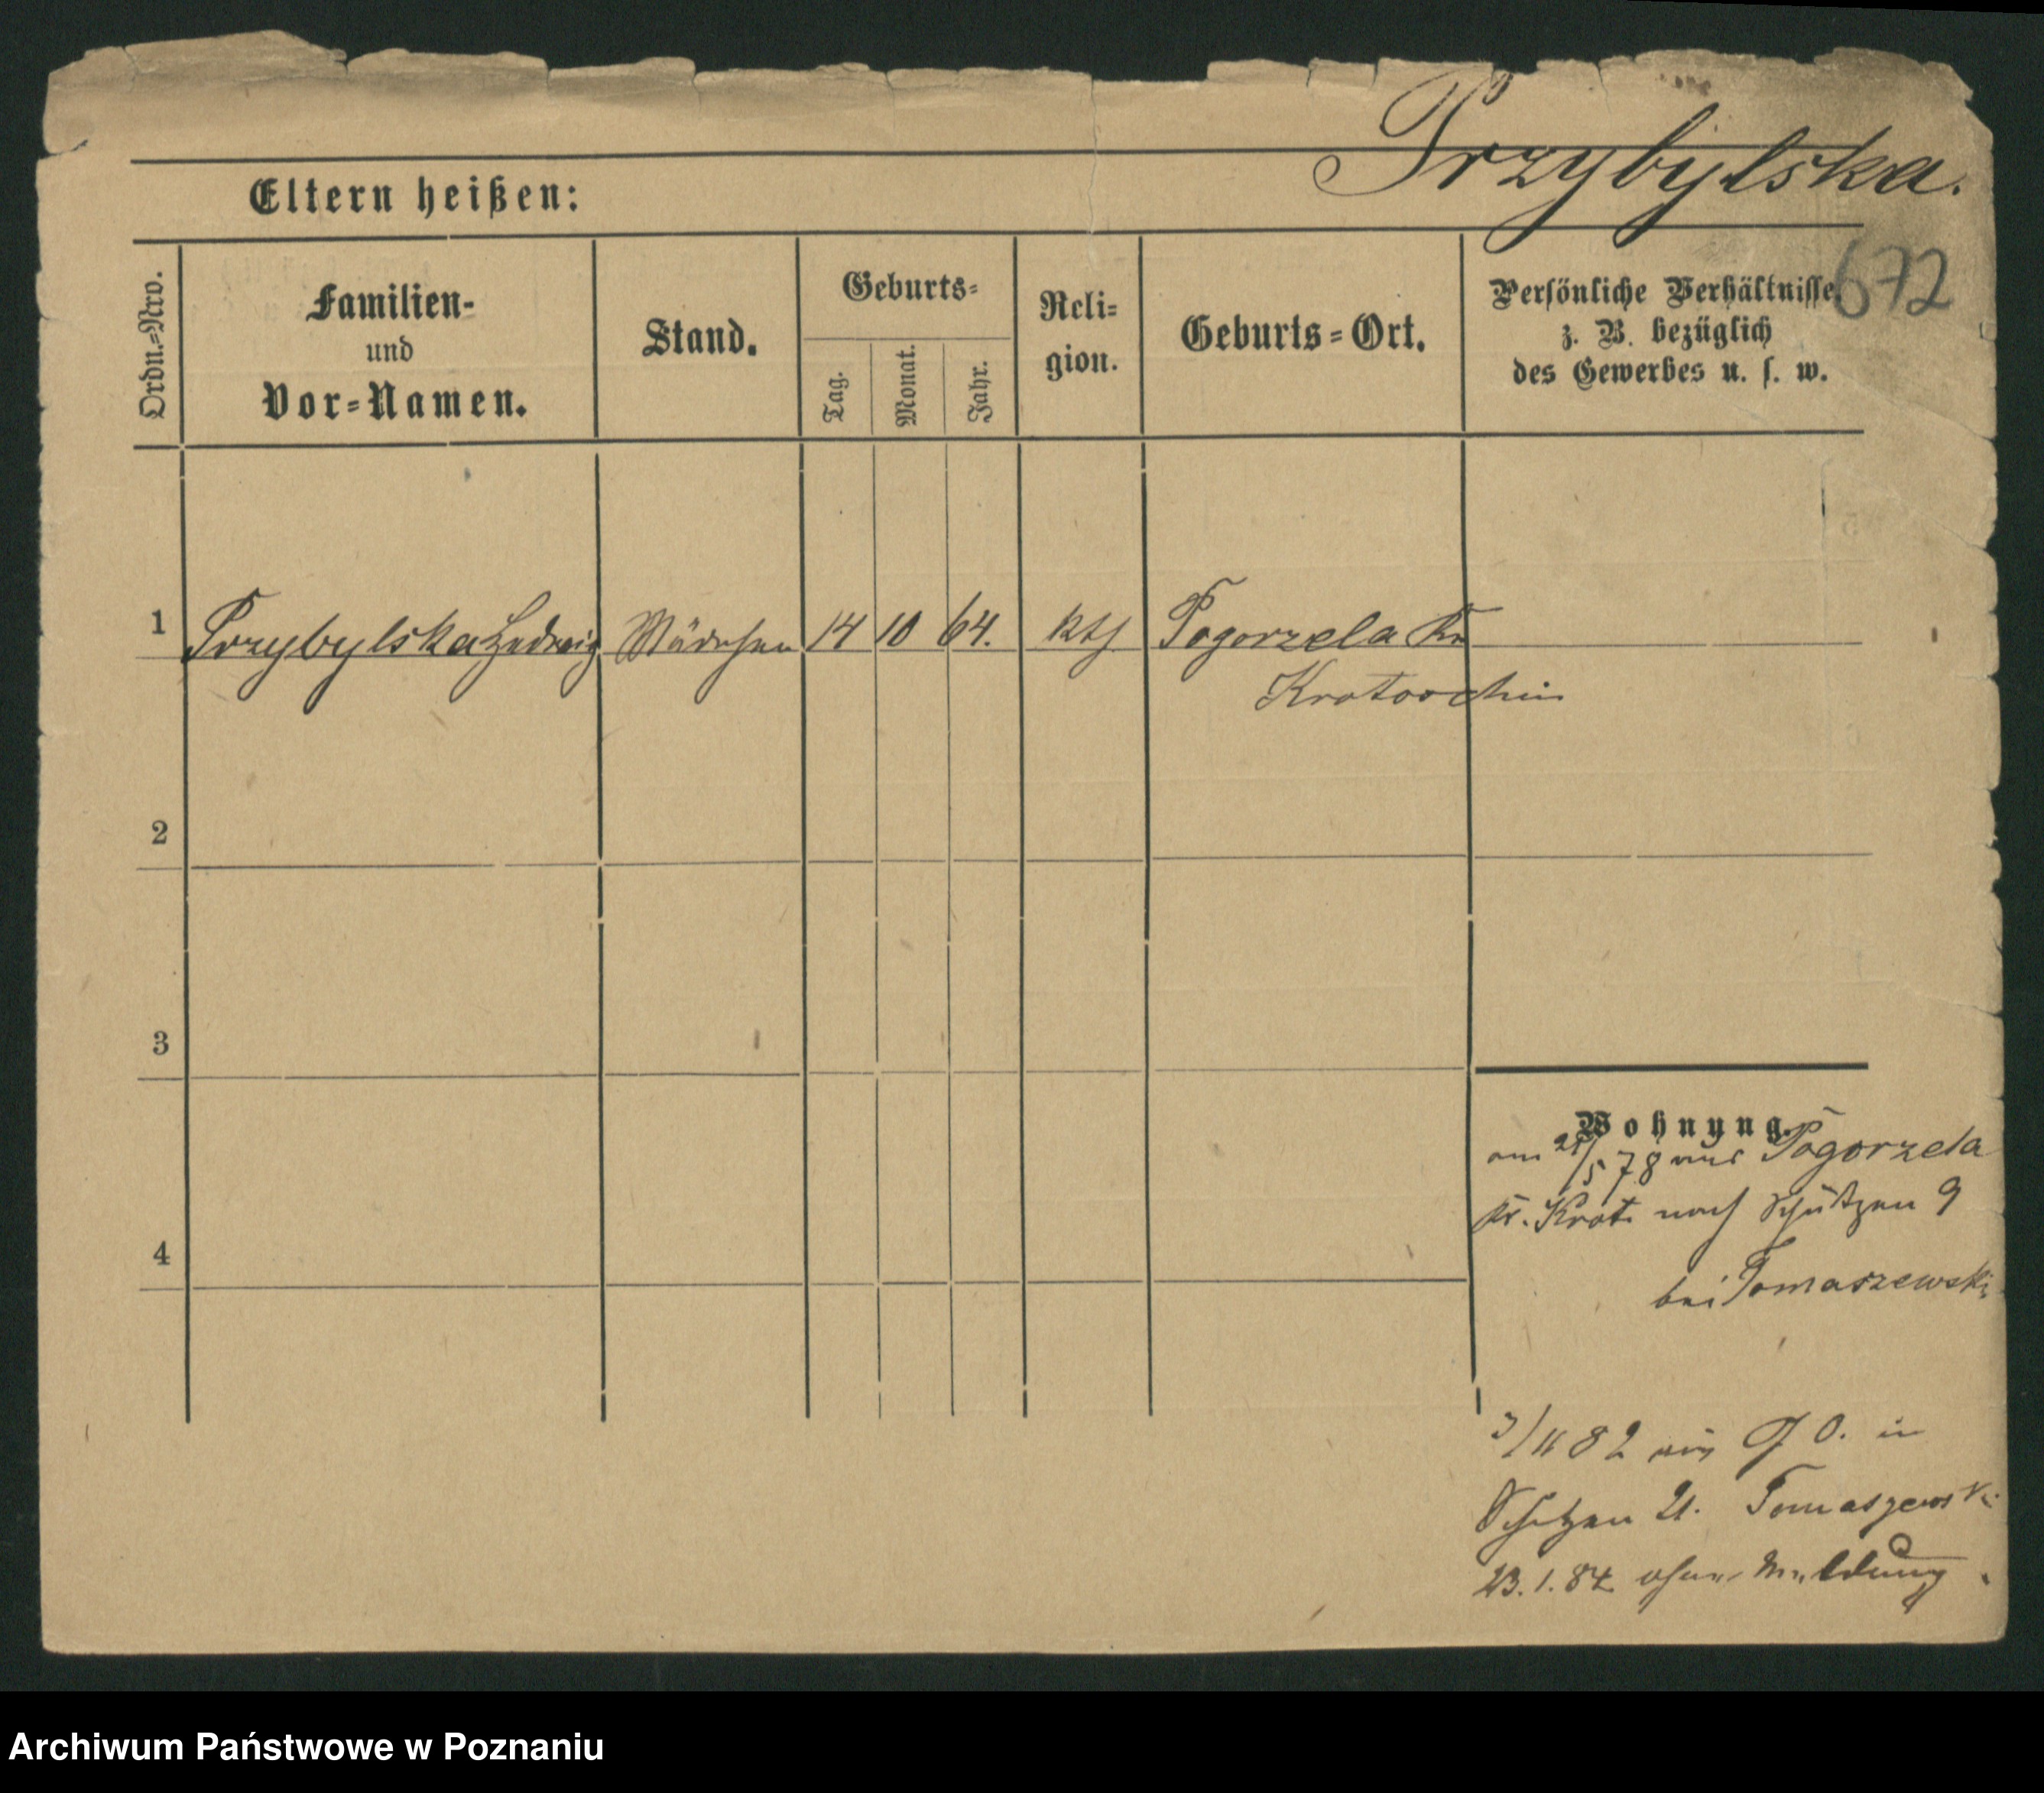 Przybylska.
Eltern heißen:
672
Ordn.=Nro.
Familien-
und
Vor=Namen.
Stand.
Geburts=
Tag.
Monat.
Jahr.
Reli=
gion.
Geburts=Ort.
Persönliche Verhältnisse,
z. B. bezüglich
des Gewerbes u. s. w.
1 Przybylska Hedwig Mädchen 14 10 64. kth Pogorzela Kr
Krotoschin
2
3
4
Wohnung.
am /5 78 aus Pogorzela
Kr. Krot. nach Schützen 9
bei Tomaszewski
3/11 82 O. in
Schützen 21. Tomaszewski
23.1.84 ohne Meldung.
Archiwum Państwowe w Poznaniu